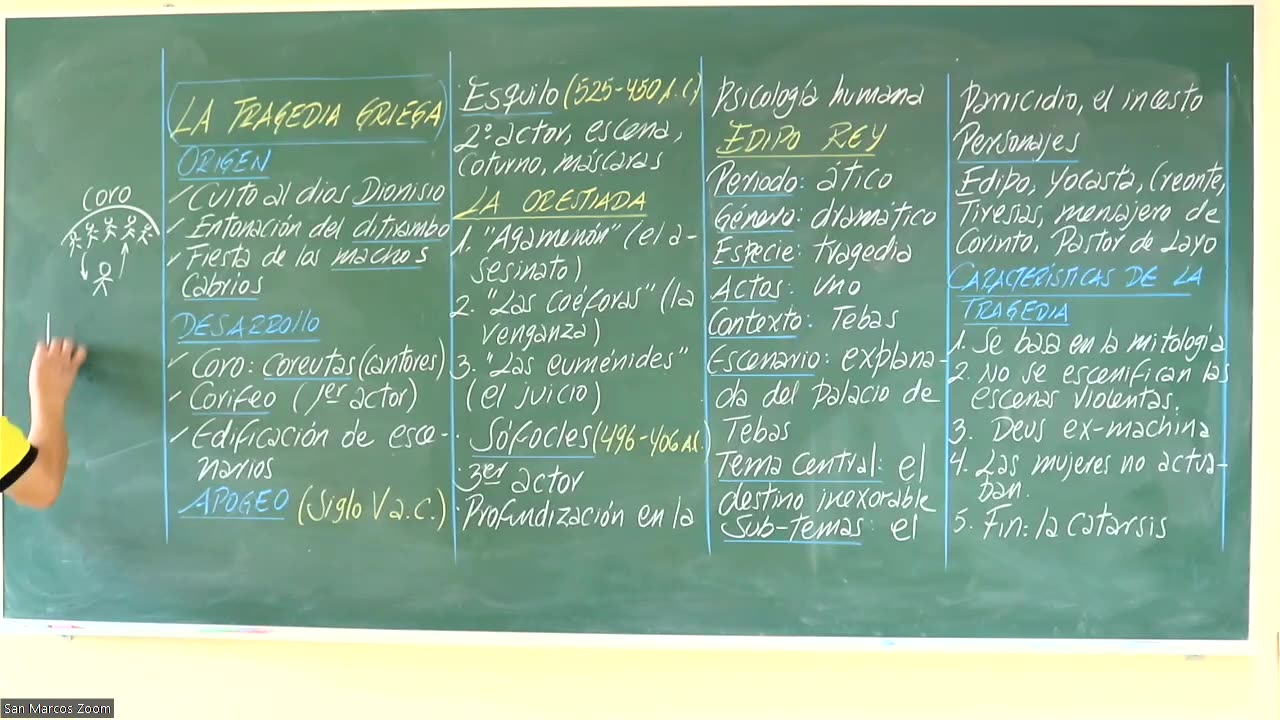 coro
LA TRAGEDIA GRIEGA
ORIGEN
✓ Culto al dios Dionisio
✓ Entonación del ditirambo
✓ Fiesta de los machos
cabríos
DESARROLLO
✓ Coro: coreutas (cantores)
✓ Corifeo (1er actor)
✓ Edificación de esce-
narios
APOGEO (Siglo V a.c.)
· Esquilo (525-450 A.C)
2º actor, escena,
coturno, máscaras
LA ORESTIADA
1. "Agamenón" (el a-
sesinato)
2. "Las coéforas" (la
venganza)
3. "Las euménides"
(el juicio)
· Sófocles (496-406 A.C.)
· 3er actor
· Profundización en la
Psicología humana
EDIPO REY
Periodo: ático
Género: dramático
Especie: tragedia
Actos: uno
Contexto: Tebas
Escenario: explana-
da del palacio de
Tebas
Tema Central: el
destino inexorable
Sub-temas: el
parricidio, el incesto
Personajes
Edipo, Yocasta, Creonte,
Tiresias, mensajero de
Corinto, Pastor de Layo
CARACTERÍSTICAS DE LA
TRAGEDIA
1. Se basa en la mitología
2. No se escenifican las
escenas violentas.
3. Deus ex-machina
4. Las mujeres no actua-
ban.
5. Fin: la catarsis
San Marcos Zoom